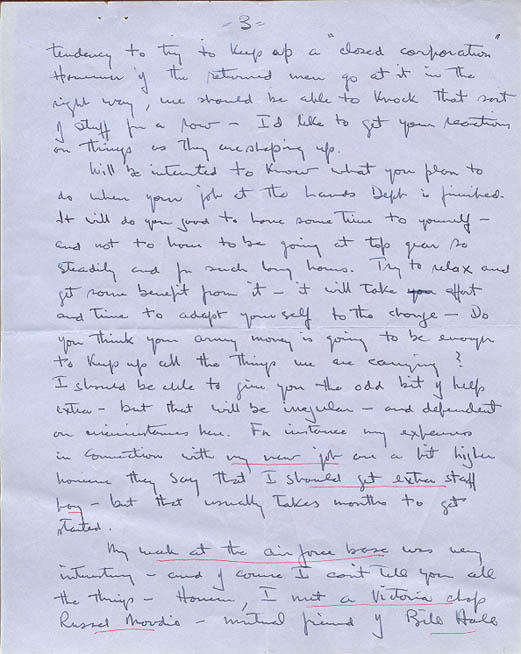 - 3 -
tendency to try to keep up a "closed corporation"
However if the returned men go at it in the
right way, we should be able to knock that sort
of stuff for a row - I'd like to get your reactions
on things as they are shaping up.
Will be interested to know what you plan to
do when your job at the Lands Dept is finished.
It will do you good to have some time to yourself -
and not to have to be going at top gear so
steadily and for such long hours. Try to relax and
get some benefit from it - it will take effort
and time to adapt yourself to the change - Do
you think your army money is going to be enough
to keep up all the things we are carrying?
I should be able to give you the odd bit of help
extra - but that will be irregular - and dependent
on circumstances here. For instance my expenses
in connection with my new job are a bit higher
however they say that I should get extra staff
pay - but that usually takes months to get
started.
My week at the air force base was very
interesting - and of course I can't tell you all
the things - However, I met a Victoria chap
Russel - mutual friend of Bill Hall